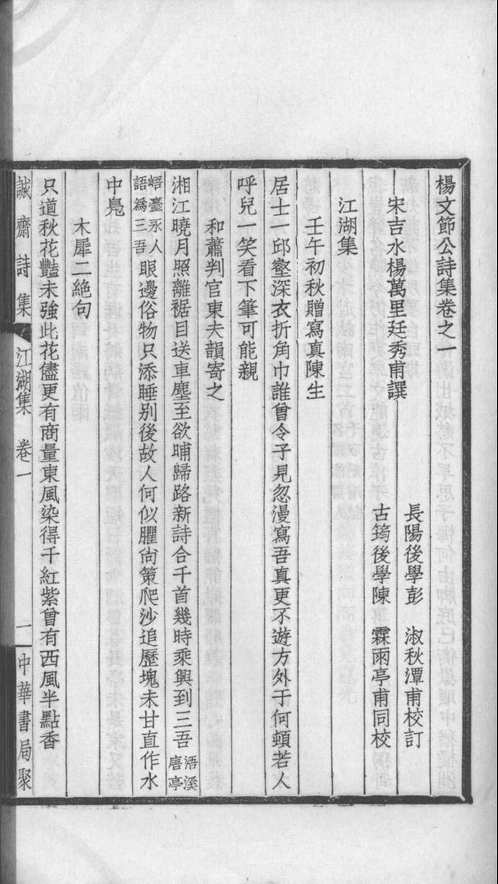 楊文節公詩集卷之一
長陽後學彭　淑秋潭甫校訂
宋吉水楊萬里廷秀甫譔
古筠後學陳　霖雨亭甫同校
江湖集
壬午初秋贈寫真陳生
居士一邱壑深衣折角巾誰曾令子見忽漫寫吾真更不遊方外于何頓若人
呼兒一笑看下筆可能親
和蕭判官東夫韻寄之
湘江曉月照離裾目送車塵至欲晡歸路新詩合千首幾時乘興到三吾浯溪𢈪亭
峿臺永人語爲三吾眼邊俗物只添睡别後故人何似臞尙策爬沙追歷塊未甘直作水
中鳧
木犀二絶句
只道秋花豔未強此花儘更有商量東風染得千紅紫曾有西風半點香
誠齋詩集　江湖集　卷一　一　中華書局聚